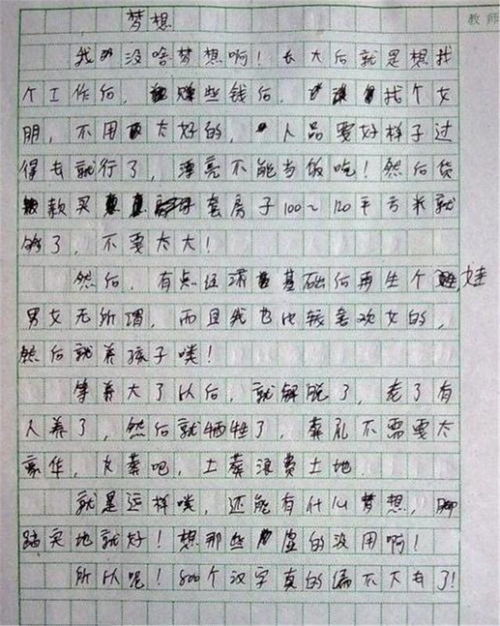 教师
梦想
我没啥梦想啊！长大后就是想找
个工作后，赚些钱后，找个女
朋，不用太好的，人品要好样子过
得去就行了，漂亮不能当饭吃！然后贷
款买套房子100~120平方米就
够了，不要太大！
然后，有点经济基础后再生个娃
男女无所谓，而且我也比较喜欢女的，
然后就养孩子喽！
等养大了以后，就解脱了，老了有
人养了，然后就牺牲了，葬礼不需要太
豪华，火葬吧，土葬浪费土地
就是这样喽，还能有什么梦想，脚
踏实地就好！想那些虚的没用啊！
所以呢！800个汉字真的编不下去了！